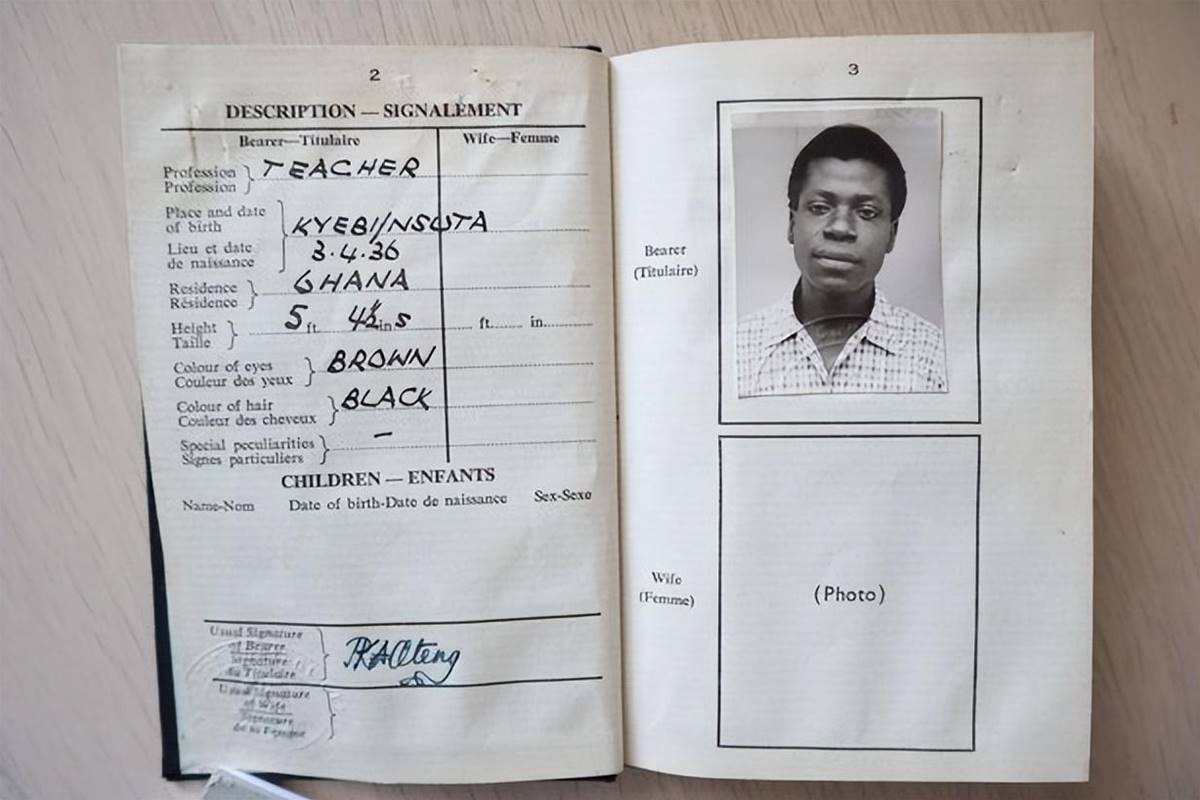 2
DESCRIPTION — SIGNALEMENT
Bearer—Titulaire Wife—Femme
Profession TEACHER
Profession
Place and date
of birth KYEBI/NSUTA
Lieu et date 3.4.36
de naissance
Residence GHANA
Résidence
Height 5 ft. 4½ ins ft. in.
Taille
Colour of eyes BROWN
Couleur des yeux
Colour of hair BLACK
Couleur des cheveux
Special peculiarities —
Signes particuliers
CHILDREN — ENFANTS
Name-Nom Date of birth-Date de naissance Sex-Sexe
Usual Signature
of Bearer
Signature
du Titulaire
Usual Signature
of Wife
Signature
de sa Femme
3
Bearer
(Titulaire)
Wife
(Femme)
(Photo)